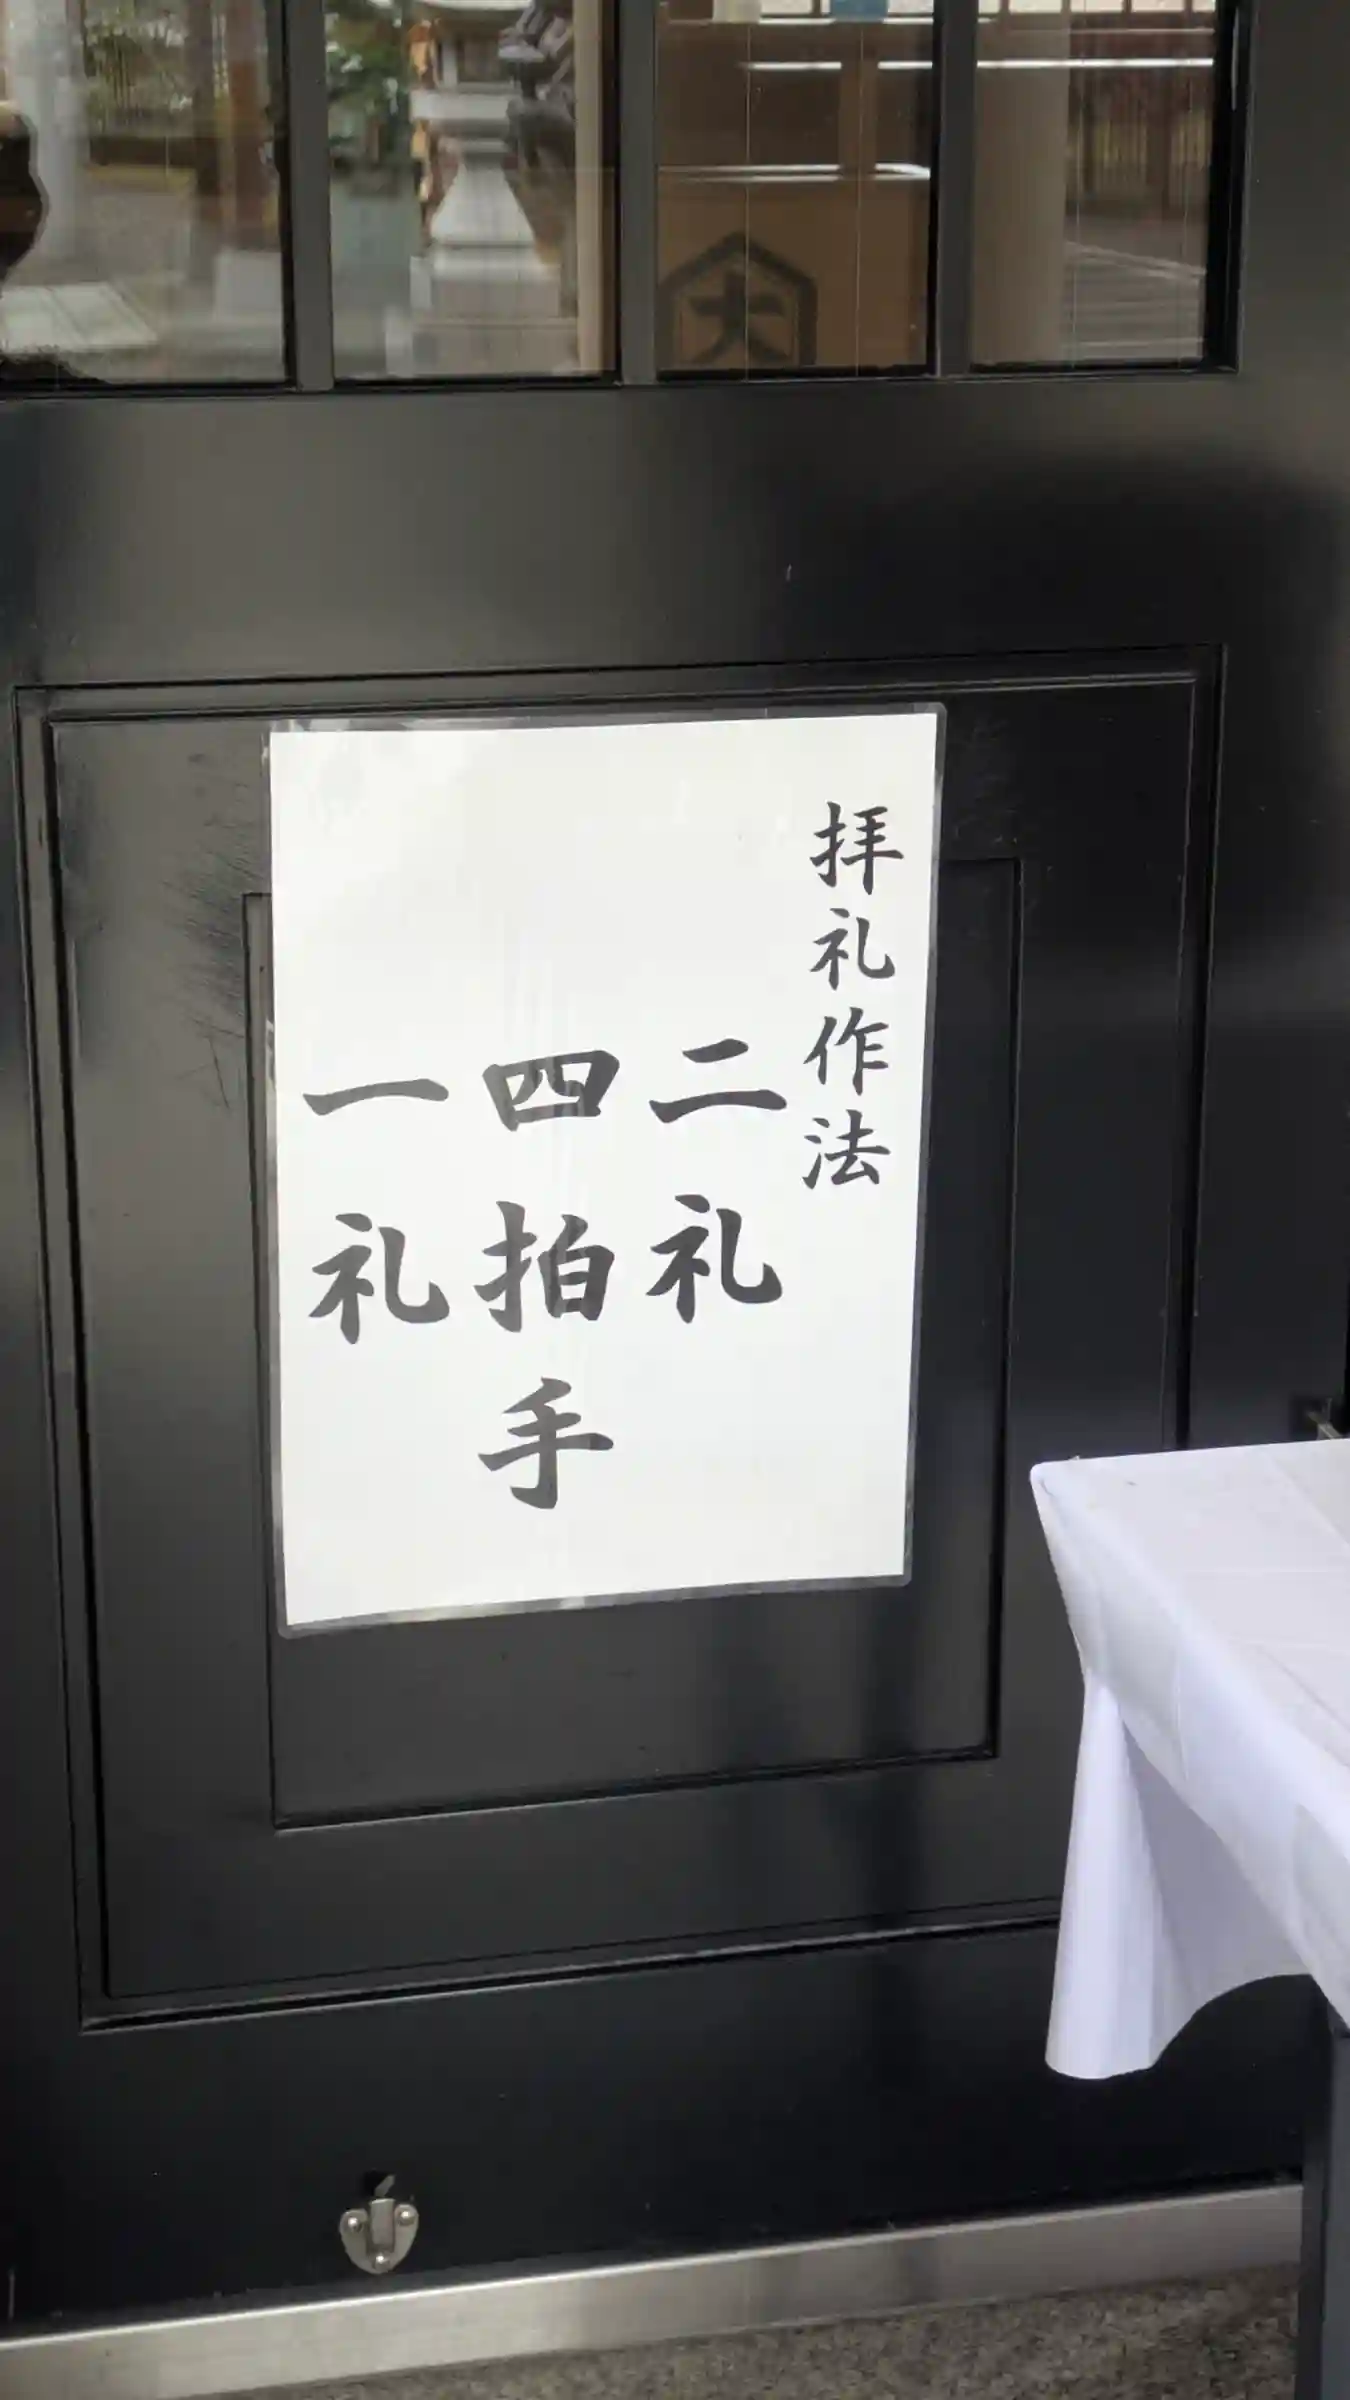 拝礼作法
二礼
四拍手
一礼
大